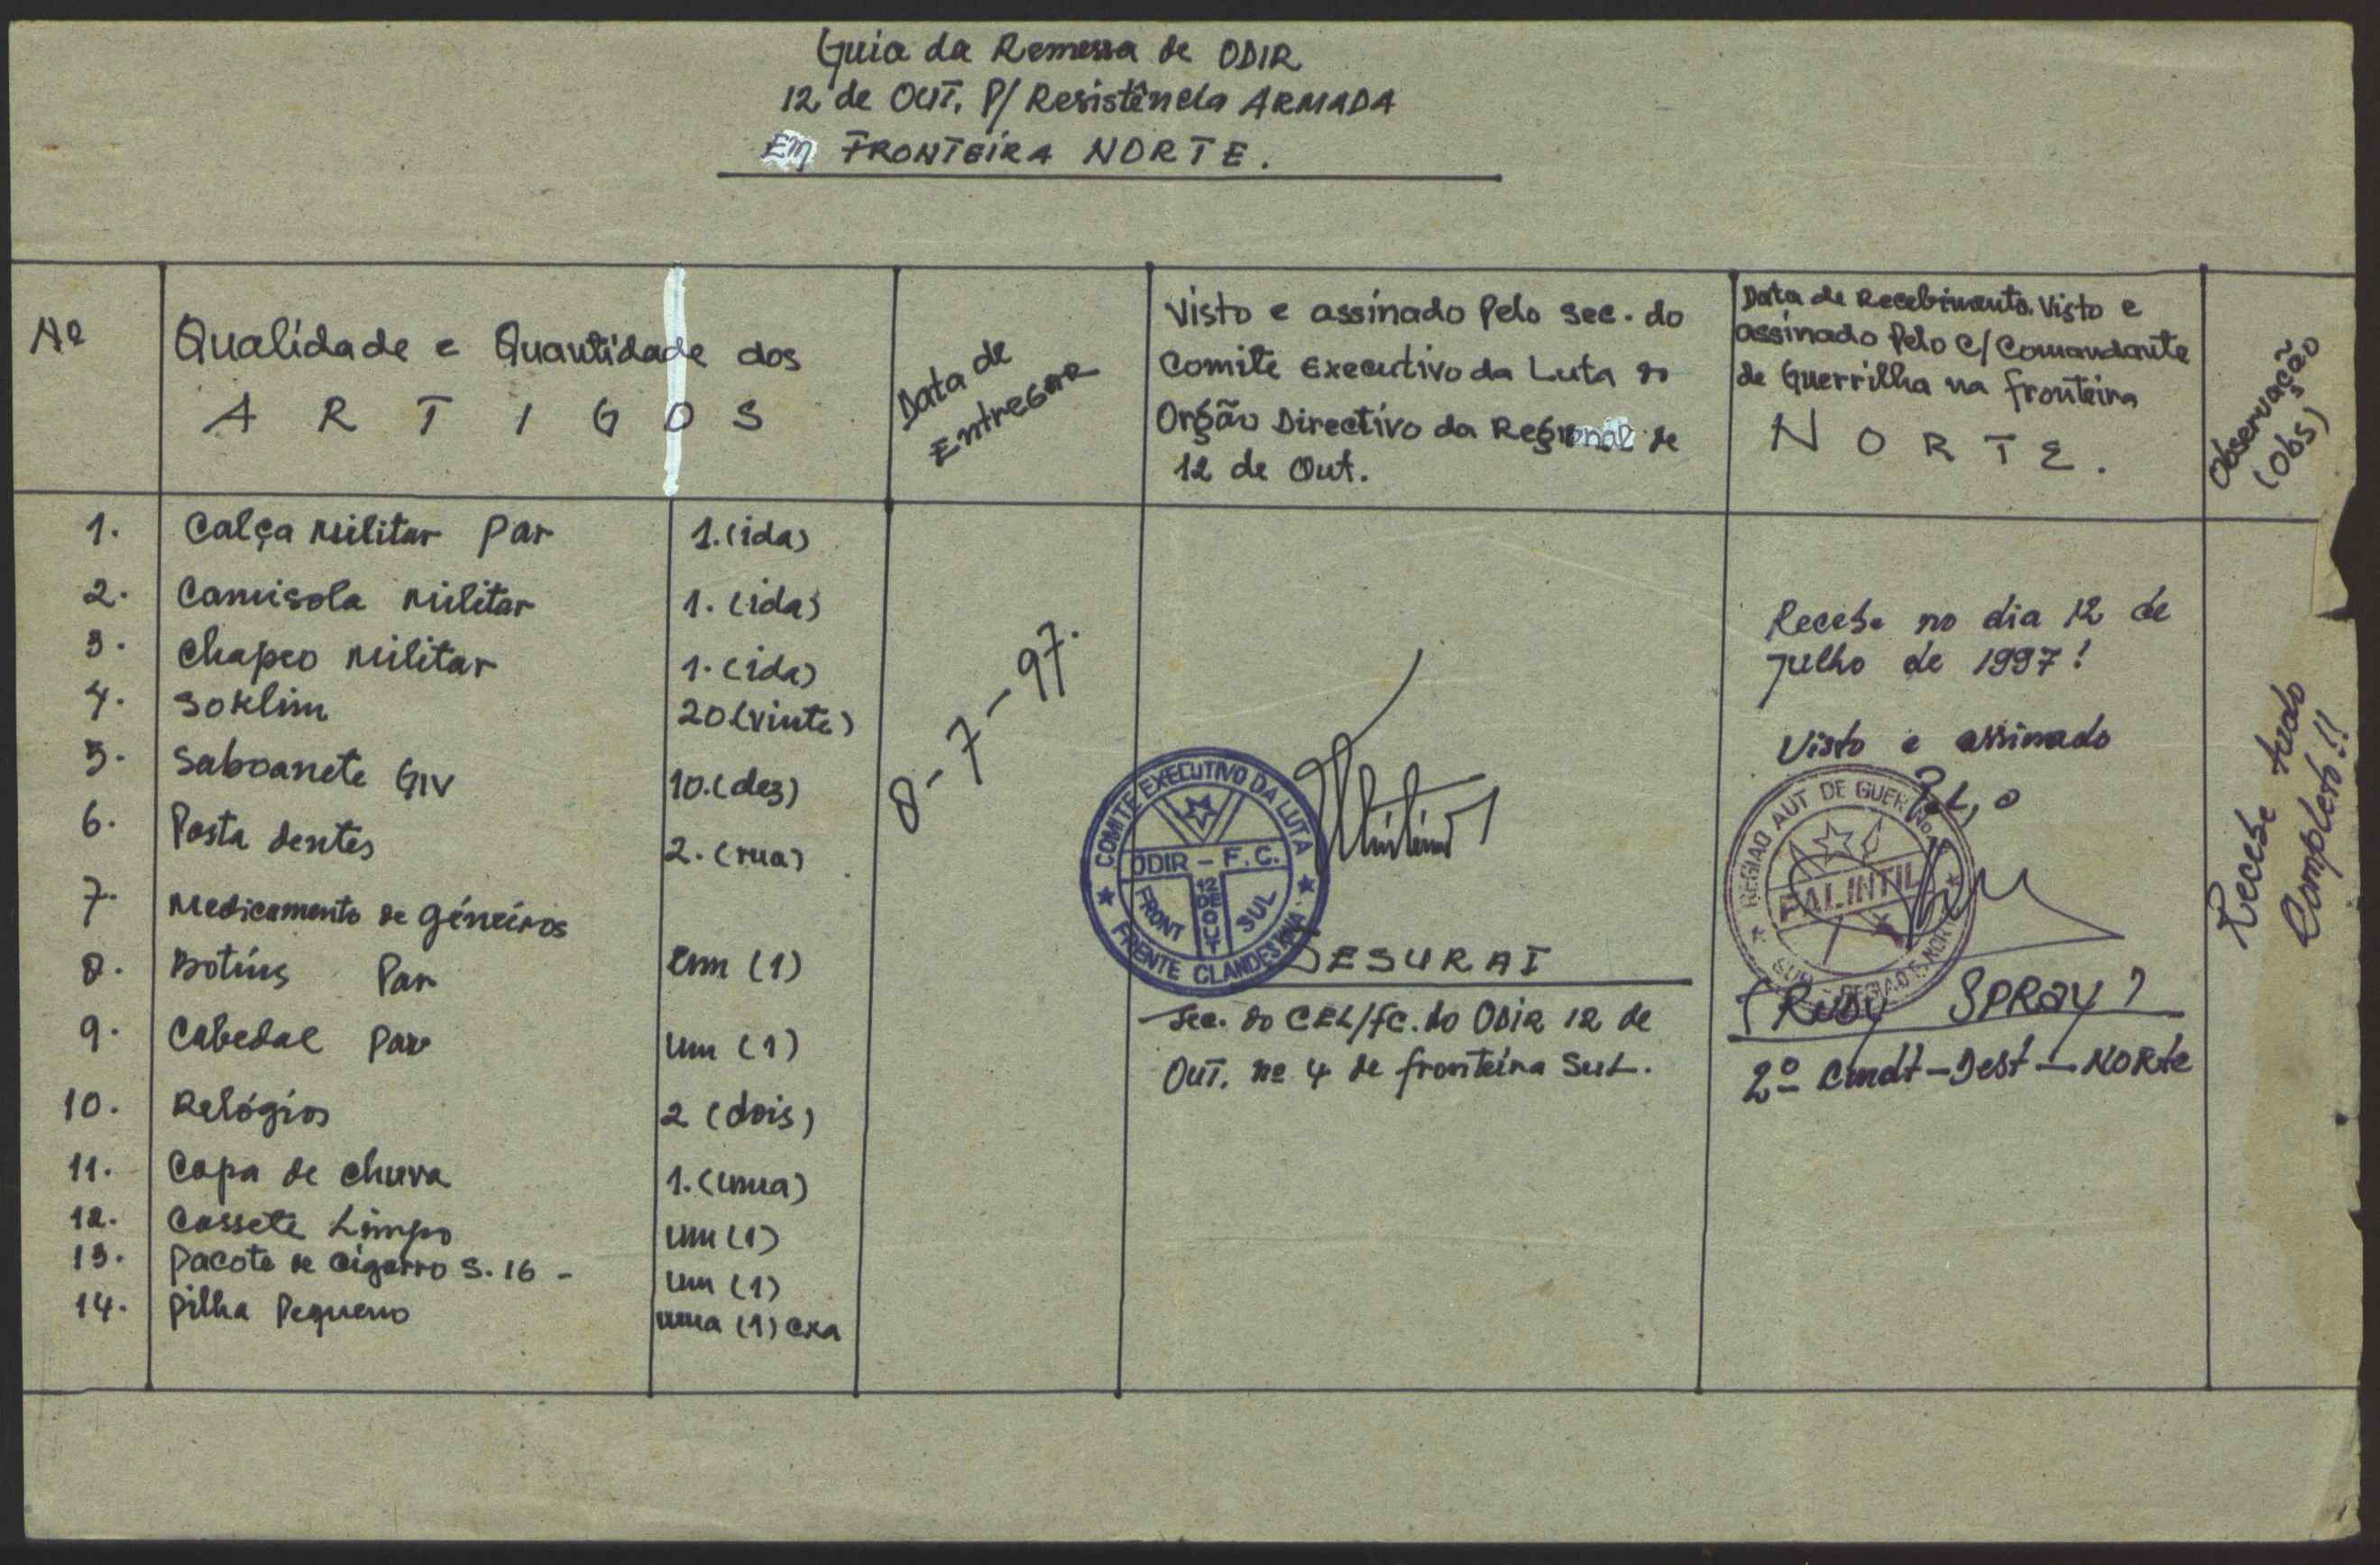 Guia da Remessa de ODIR
12 de OUT. P/ Resistência ARMADA
EM FRONTEIRA NORTE.
Nº
Qualidade e Quantidade dos
ARTIGOS
Data de
Entregar
Visto e assinado Pelo Sec. do
Comite Executivo da Luta do
Orgão Directivo da Regional de
12 de Out.
Data de Recebimento. Visto e
assinado Pelo C/ Comandante
de Guerrilha na fronteira
NORTE.
Observação
(Obs)
1. Calça Militar Par 1.(ida)
2. Camisola Militar 1.(ida)
3. Chapeo Militar 1.(ida)
4. Soklim 20(vinte)
5. Saboanete GIV 10.(dez)
6. Pasta dentes 2.(rua)
7. Medicamento de géneiros
8. Botins Par um (1)
9. Cabedal Par um (1)
10. Relógios 2 (dois)
11. Capa de chuva 1.(uma)
12. Cassete Limpo um (1)
13. Pacote de cigarro S. 16 - um (1)
14. Pilha Pequeno uma (1) cxa
8-7-97.
COMITE EXECUTIVO DA LUTA
ODIR - F.C.
FRONT 12 DE OUT SUL
FRENTE CLANDESTINA
SESURAI
Sec. do CEL/FC. do ODIR 12 de
OUT. nº 4 de fronteira Sul.
Recebe no dia 12 de
Julho de 1997!
Visto e assinado
REGIAO AUT DE GUER
FALINTIL
(Ruby SPRay)
2º Cmdt-Dest-Norte
Recebe tudo
Completo!!